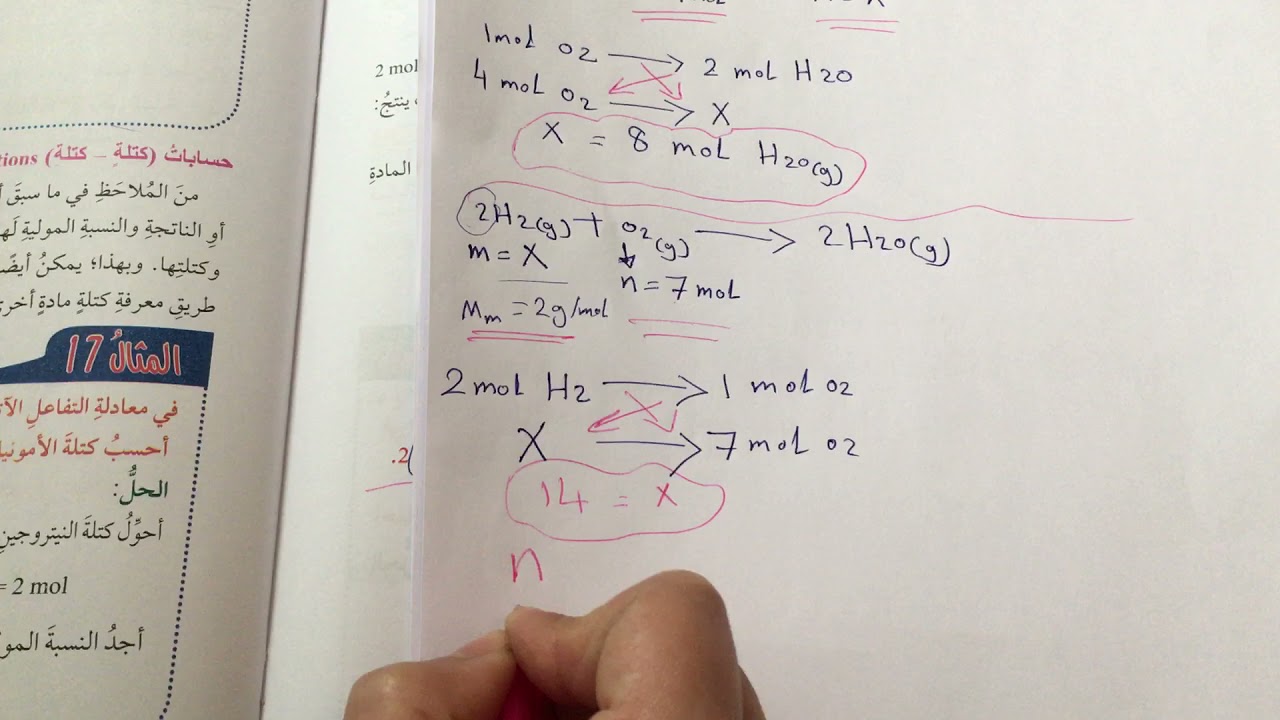 2 mol
ينتجُ:
المادةِ
.2
حساباتُ (كتلةِ – كتلة) tions
منَ المُلاحَظِ في ما سبقَ
أوِ الناتجةِ والنسبةِ الموليةِ لَه
وكتلتِها. وبهذا؛ يمكنُ أيضً
طريقِ معرفةِ كتلةِ مادةٍ أخرى
المثالُ 17
في معادلةِ التفاعلِ الآت
أحسبُ كتلةَ الأمونيا
الحلُّ:
أحوِّلُ كتلةَ النيتروجينِ
= 2 mol
أجدُ النسبةَ المو
1mol O2 → 2 mol H2O
4 mol O2 → X
X = 8 mol H2O(g)
2H2(g) + O2(g) → 2H2O(g)
m = X n = 7 mol
Mm = 2g/mol
2 mol H2 → 1 mol O2
X → 7 mol O2
14 = X
n